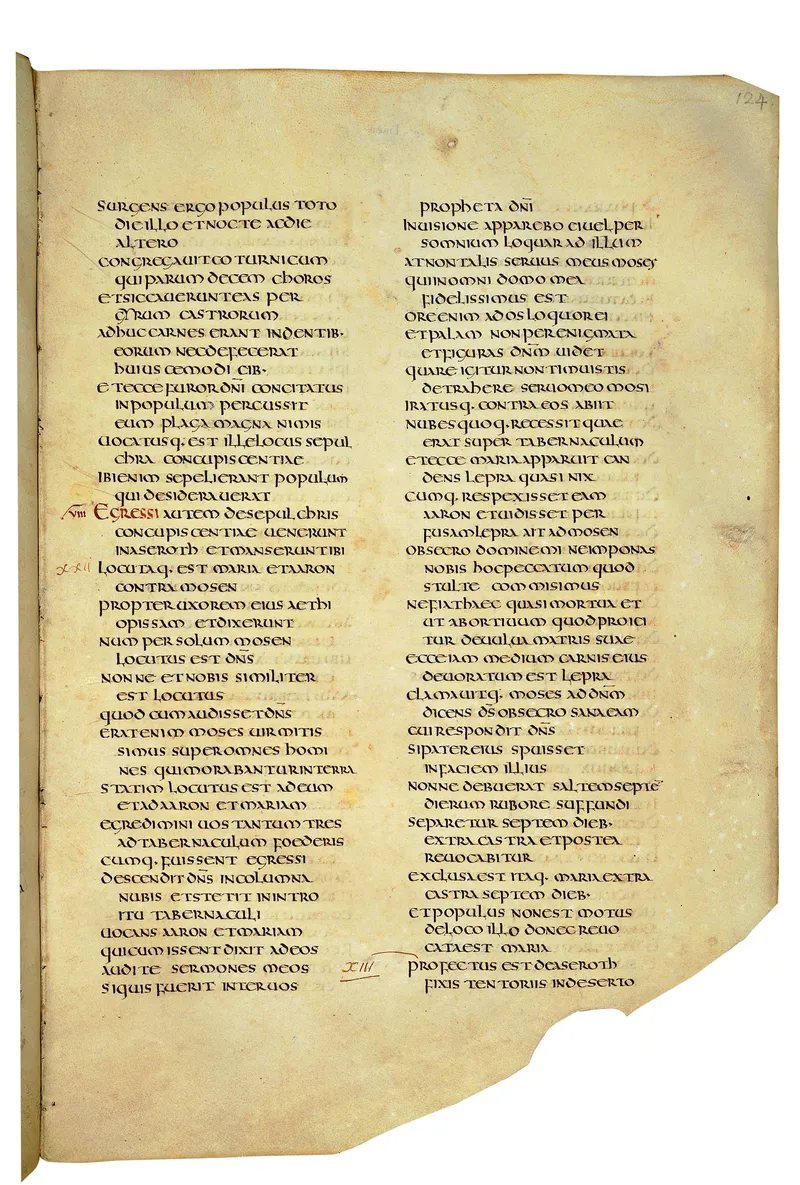 124
SURGENS ERGO POPULUS TOTO
DIE ILLO ET NOCTE AC DIE
ALTERO
CONGREGAUIT COTURNICUM
QUI PARUM DECEM CHOROS
ET SICCAUERUNT EAS PER
GYRUM CASTRORUM
ADHUC CARNES ERANT IN DENTIB·
EORUM NEC DEFECERAT
HUIUSCEMODI CIB·
ET ECCE FUROR DN̄I CONCITATUS
IN POPULUM PERCUSSIT
EUM PLAGA MAGNA NIMIS
UOCATUSQ· EST ILLE LOCUS SEPUL
CHRA CONCUPISCENTIAE
IBI ENIM SEPELIERANT POPULUM
QUI DESIDERAUERAT
XVIII EGRESSI AUTEM DE SEPULCHRIS
CONCUPISCENTIAE UENERUNT
IN ASEROTH ET MANSERUNT IBI
XII LOCUTAQ· EST MARIA ET AARON
CONTRA MOSEN
PROPTER UXOREM EIUS AETHI
OPISSAM ET DIXERUNT
NUM PER SOLUM MOSEN
LOCUTUS EST DN̄S
NONNE ET NOBIS SIMILITER
EST LOCUTUS
QUOD CUM AUDISSET DN̄S
ERAT ENIM MOSES UIR MITIS
SIMUS SUPER OMNES HOMI
NES QUI MORABANTUR IN TERRA
STATIM LOCUTUS EST AD EUM
ET AD AARON ET MARIAM
EGREDIMINI UOS TANTUM TRES
AD TABERNACULUM FOEDERIS
CUMQ· FUISSENT EGRESSI
DESCENDIT DN̄S IN COLUMNA
NUBIS ET STETIT IN INTRO
ITU TABERNACULI
UOCANS AARON ET MARIAM
QUI CUM ISSENT DIXIT AD EOS
AUDITE SERMONES MEOS
SI QUIS FUERIT INTER UOS
PROPHETA DN̄I
IN UISIONE APPAREBO EI UEL PER
SOMNIUM LOQUAR AD ILLUM
AT NON TALIS SERUUS MEUS MOSES
QUI IN OMNI DOMO MEA
FIDELISSIMUS EST
ORE ENIM AD OS LOQUOR EI
ET PALAM NON PER ENIGMATA
ET FIGURAS DN̄M UIDET
QUARE IGITUR NON TIMUISTIS
DETRAHERE SERUO MEO MOSI
IRATUSQ· CONTRA EOS ABIIT
NUBES QUOQ· RECESSIT QUAE
ERAT SUPER TABERNACULUM
ET ECCE MARIA APPARUIT CAN
DENS LEPRA QUASI NIX
CUMQ· RESPEXISSET EAM
AARON ET UIDISSET PER
FUSAM LEPRA AIT AD MOSEN
OBSECRO DOMINE MI NE IMPONAS
NOBIS HOC PECCATUM QUOD
STULTE COMMISIMUS
NE FIAT HAEC QUASI MORTUA ET
UT ABORTIUUM QUOD PROICI
TUR DE UULUA MATRIS SUAE
ECCE IAM MEDIUM CARNIS EIUS
DEUORATUM EST LEPRA
CLAMAUITQ· MOSES AD DN̄M
DICENS D̄S OBSECRO SANA EAM
CUI RESPONDIT DN̄S
SI PATER EIUS SPUISSET
IN FACIEM ILLIUS
NONNE DEBUERAT SALTEM SEPTĒ
DIERUM RUBORE SUFFUNDI
SEPARETUR SEPTEM DIEB·
EXTRA CASTRA ET POSTEA
REUOCABITUR
EXCLUSA EST ITAQ· MARIA EXTRA
CASTRA SEPTEM DIEB·
ET POPULUS NON EST MOTUS
DE LOCO ILLO DONEC REUO
CATA EST MARIA
XIII PROFECTUS EST DE ASEROTH
FIXIS TENTORIIS IN DESERTO